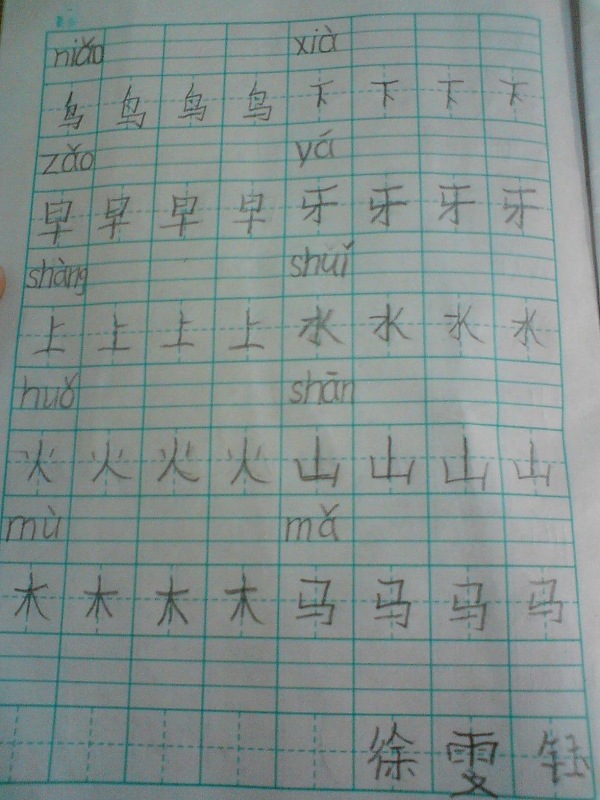 niǎo xià
鸟 鸟 鸟 鸟 下 下 下 下
zǎo yá
早 早 早 早 牙 牙 牙 牙
shàng shuǐ
上 上 上 上 水 水 水 水
huǒ shān
火 火 火 火 山 山 山 山
mù mǎ
木 木 木 木 马 马 马 马
徐 雯 钰